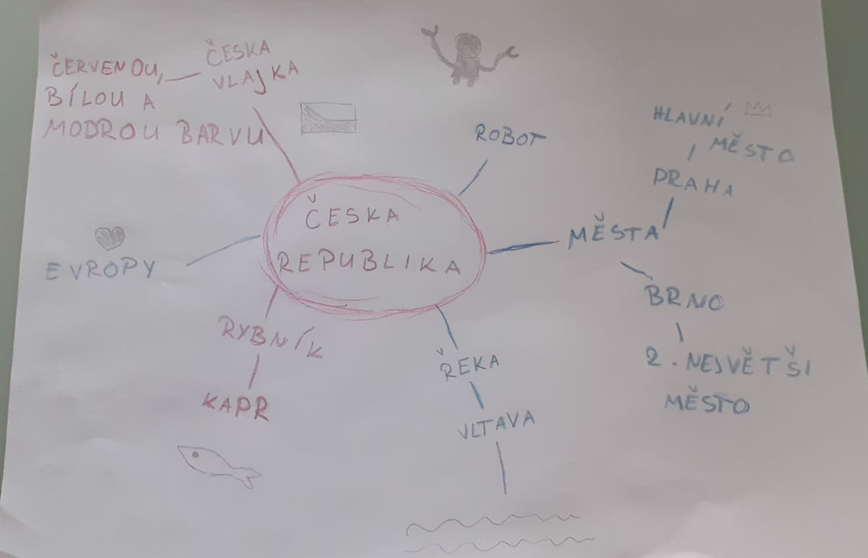 ČESKA
REPUBLIKA
ČESKA
VLAJKA
ČERVENOU,
BÍLOU A
MODROU BARVU
ROBOT
MĚSTA
PRAHA
HLAVNÍ
MĚSTO
BRNO
2. NEJVĚTŠI
MĚSTO
ŘEKA
VLTAVA
RYBNÍK
KAPR
EVROPY